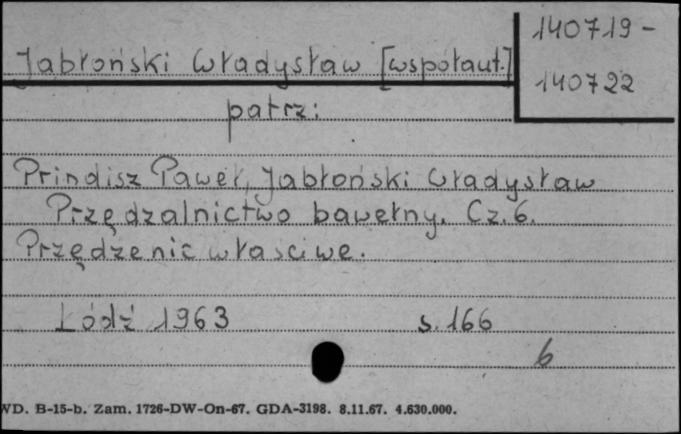 140719-
Jabłoński Władysław [współaut.]
140722
patrz:
Prindisz Paweł, Jabłoński Władysław
Przędzalnictwo bawełny. Cz. 6.
Przędzenie właściwe.
Łódź 1963 s. 166
6
WD. B-15-b. Zam. 1726-DW-On-67. GDA-3198. 8.11.67. 4.630.000.